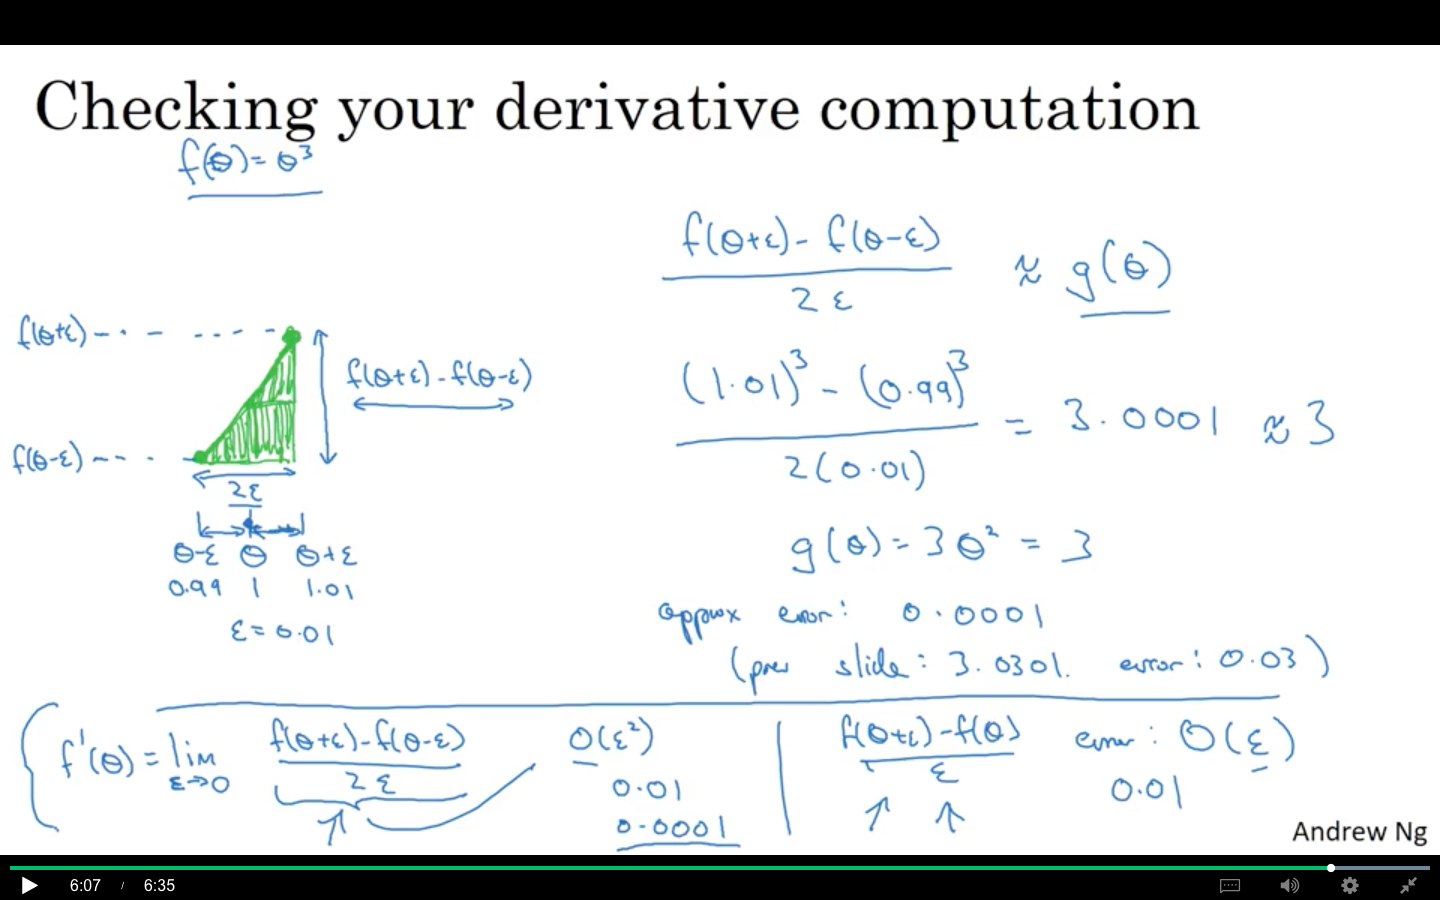 Checking your derivative computation
f(θ) = θ³
f(θ+ε) - f(θ-ε)
2ε
≈ g(θ)
f(θ+ε)
f(θ+ε) - f(θ-ε)
(1.01)³ - (0.99)³
2(0.01)
= 3.0001 ≈ 3
f(θ-ε)
2ε
θ-ε θ θ+ε
0.99 1 1.01
ε = 0.01
g(θ) = 3θ² = 3
approx error: 0.0001
(prev slide: 3.0301. error: 0.03)
f'(θ) = lim
ε→0
f(θ+ε) - f(θ-ε)
2ε
O(ε²)
0.01
0.0001
f(θ+ε) - f(θ)
ε
error: O(ε)
0.01
Andrew Ng
6:07 / 6:35